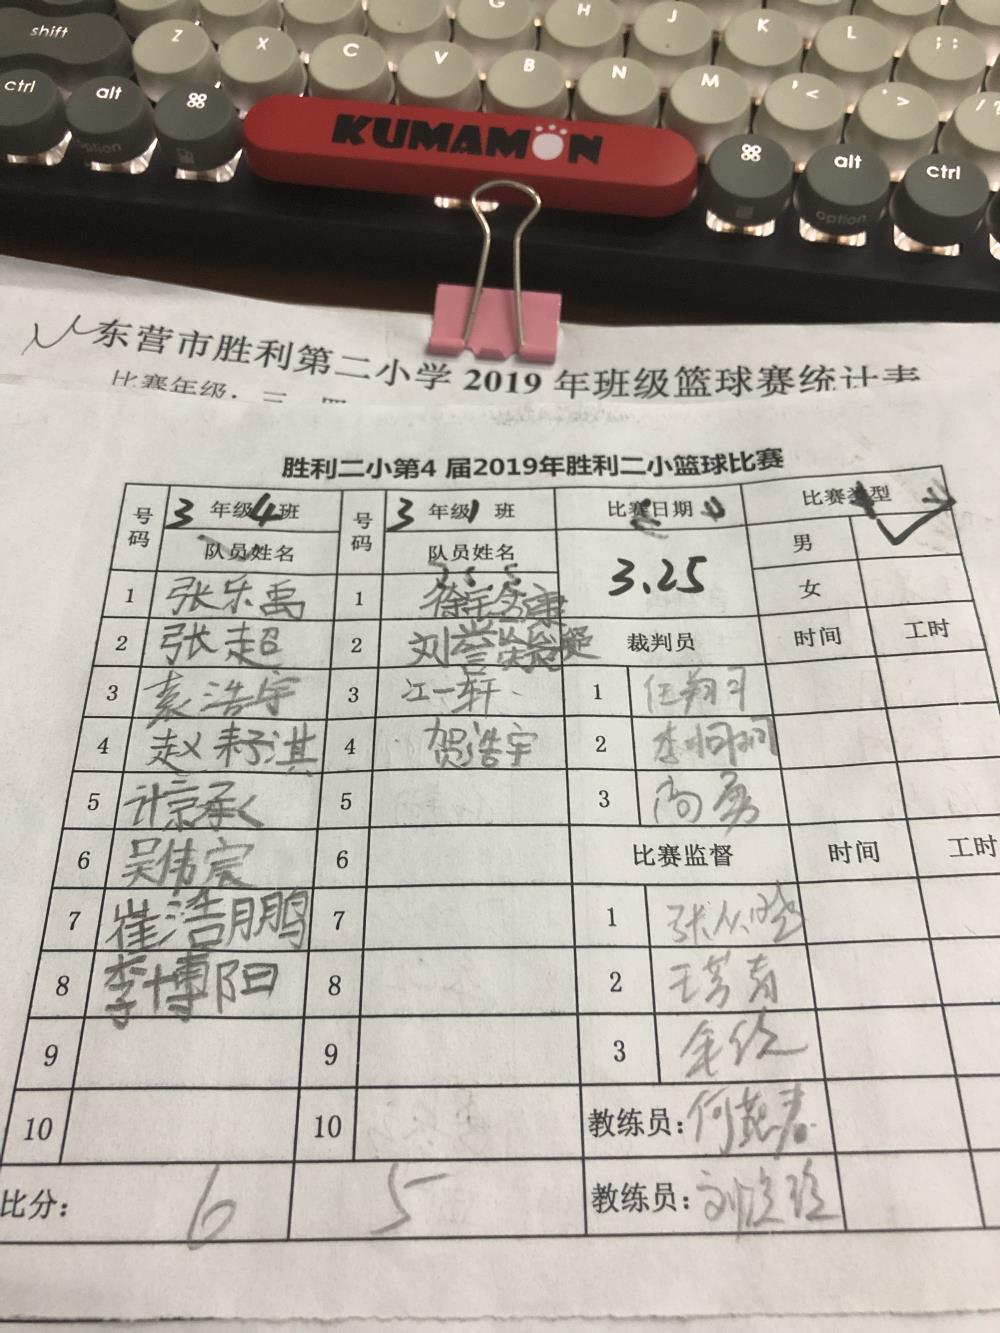 shift Z X C V B N M G H J K L ; :
ctrl alt option ⌘ , < . > / ? ⌘ alt option ctrl
KUMAMON
东营市胜利第二小学 2019 年班级篮球赛统计表
比赛年级：三 四
胜利二小第4 届2019年胜利二小篮球比赛
号码 3 年级4班 号码 3 年级1 班 比赛日期 比赛类型
队员姓名 队员姓名 3.25 男 ✓
女
1 张乐禹 1
2 张超 2 裁判员 时间 工时
3 袁浩宇 3 江一轩 1
4 赵耔淇 4 贺浩宇 2
5 计京承 5 3 尚勇
6 吴伟宸 6 比赛监督 时间 工时
7 崔浩鹏 7 1
8 李博阳 8 2 王芳青
9 9 3
10 10 教练员：何燕春
比分： 6 5 教练员：